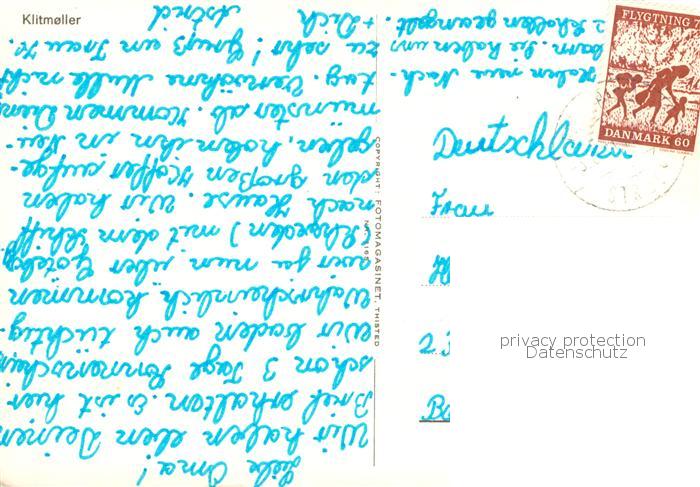 Klitmøller
Liebe Oma!
Wir haben eben Deinen
Brief erhalten. Es ist hier
schon 3 Tage Sonnenschein
Wir baden auch tüchtig.
Wahrscheinlich kommen
wir ja nun über Göteborg
(Schweden) mit dem Schiff
nach Hause. Wir haben
den großen Koffer aufge-
geben, holen ihn in Neu-
münster ab. Kommen Diens
tag. Verwöhne Mulle nicht
zu sehr! Gruß an Frau K.
+ Dich
Astrid
Haben neue Nach-
barn. Sie haben uns
2 Schollen geangelt.
COPYRIGHT: FOTOMAGASINET, THISTED
FLYGTNING 7
DANMARK 60
Deutschland
Frau
2
privacy protection
Datenschutz